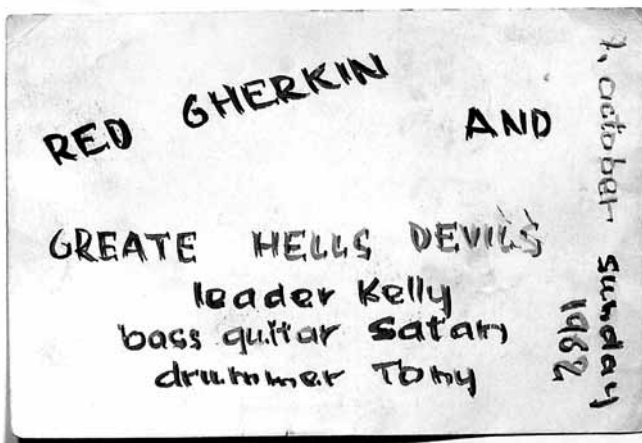 RED GHERKIN AND
GREATE HELLS DEVILS
leader Kelly
bass quitar Satan
drummer Tony
7, october sunday
1962